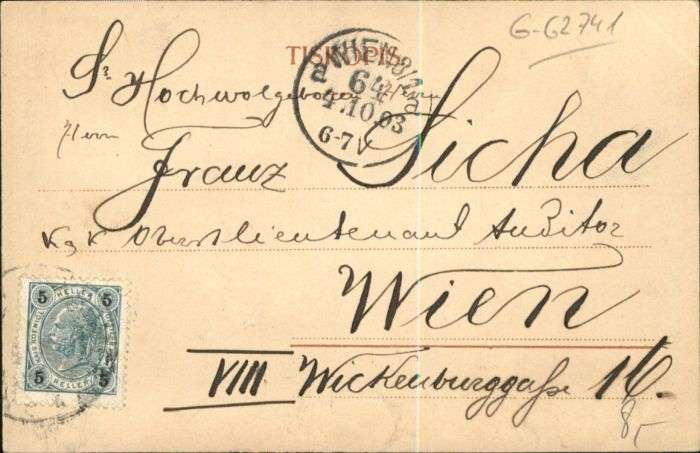 G-G2741
TISKOPIS.
WIEN 8/1
64
4.10.03
6-7V
Sr Hochwolgeboren Herrn
Herrn
Franz Sicha
K. k Oberstlieutenant Auditor
Wien
VIII Wickenburggaße 16.
8,-
5 5
HELLER
5 5
HELLER